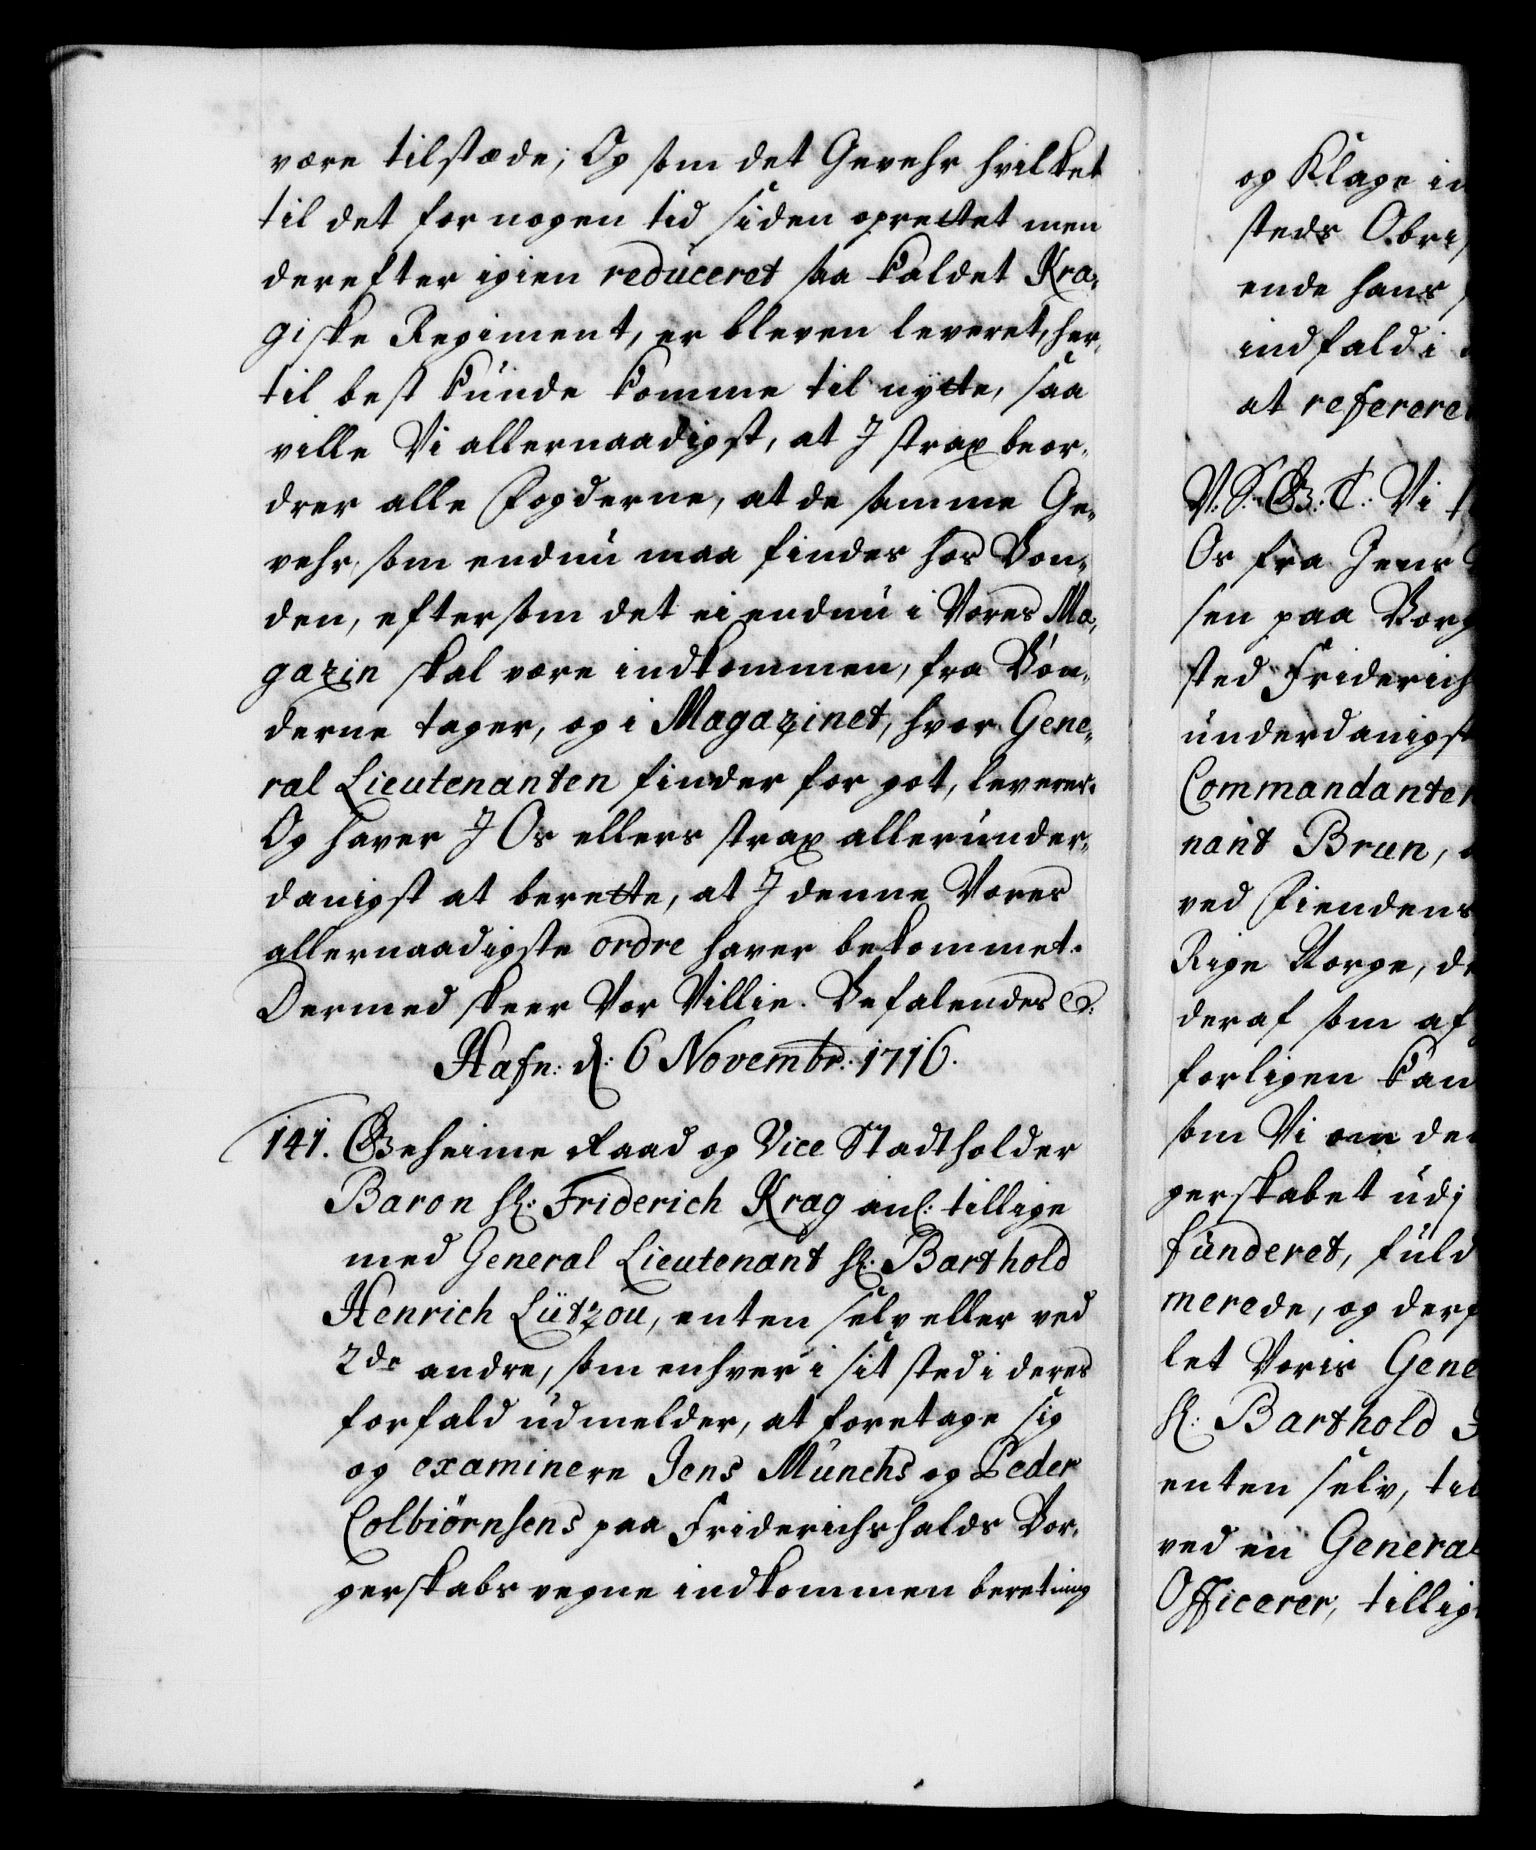 være tilstæde; Og som det Gevehr hvilket
til det for nogen tid siden oprettet men
derefter igien reduceret saa kaldet Kra,
giske Regiment, er bleven leveret, her,
til best kunde komme til nytte, saa
ville Vi allernaadigst, at I strax beor,
drer alle Fogderne, at de samme Ge,
vehr, som endnu maa findes hos Bon,
den, eftersom det ei endnu i Vores Ma,
gazin skal være indkommen, fra Bøn,
derne tager, og i Magazinet, hvor Gene,
ral Lieutenanten finder for got, leverer.
Og haver I Os ellers strax allerunder,
danigst at berette, at I denne Vores
allernaadigste ordre haver bekommet.
Dermed skeer Vor Villie. Befalendes &:
Hafn: d: 6 Novembr: 1716.
141. Geheime Raad og Vice Stadtholder
Baron Hr: Friderich Krag anl: tillige
med General Lieutenant Hr: Barthold
Henrich Lützou, enten selv eller ved
2de andre, som enhver i sit sted i deres
forfald udmelder, at foretage sig
og examinere Jens Munchs og Peder
Colbiørnsens paa Friderichshalds Bor,
gerskabs vegne indkommen beretning
og Klage in
steds Obri
ende hans
indfald i
at referere
V: S: G: T: Vi
Os fra Jens
sen paa Borg
sted Friderich
underdanigst
Commandanten
nant Brun,
ved Fiendens
Rige Norge, de
deraf som af
forligen kan
som Vi om de
gerskabet udi
funderet, fuld
merede, og derf
let Voris Gene
Hr: Barthold
enten selv, til
ved en General
Officerer, tillig